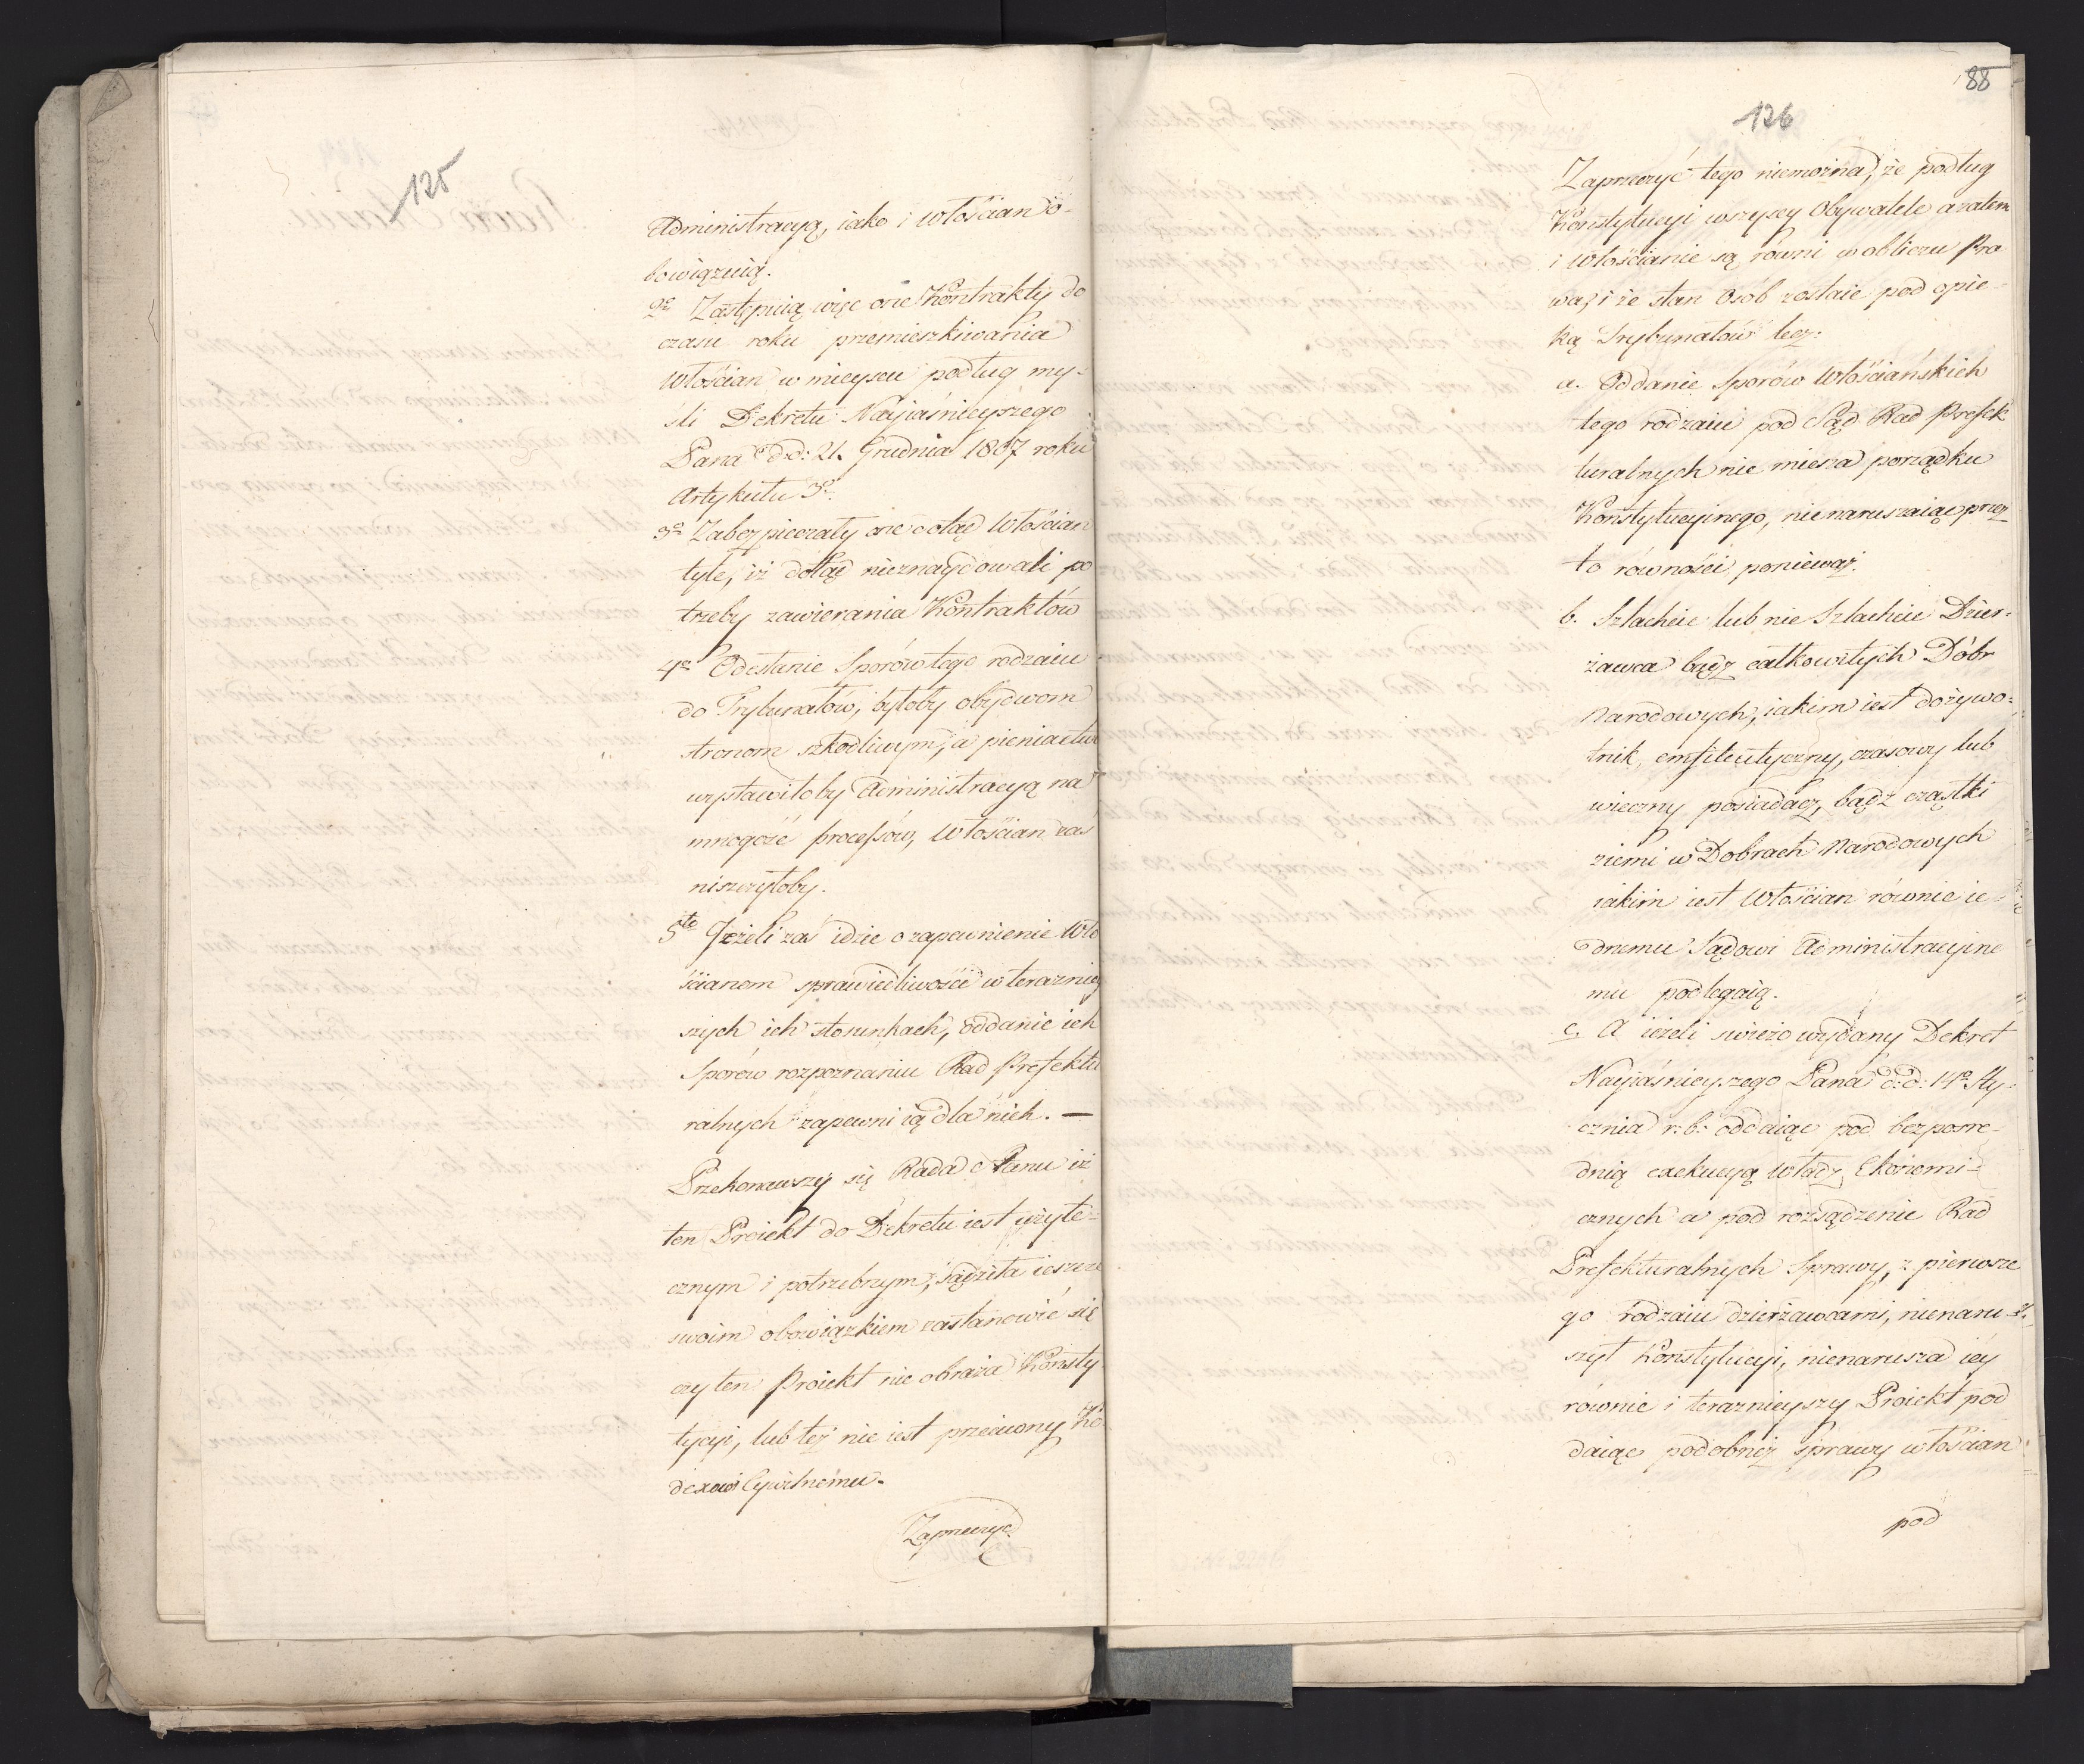 125
Administracyą, iako i Włościan o-
bowiązuią.
2o Zastępuią więc one Kontrakty do
czasu roku przemieszkiwania
Włościan w mieyscu podług my-
śli Dekretu Nayiaśnieyszego
Pana d: d: 21. Grudnia 1807 roku
Artykułu 3o.
3o Zabezpieczały one dotąd Włościan
tyle, iż dotąd nieznaydowali po
trzeby zawierania Kontraktów
4o Odesłanie Sporów tego rodzaiu
do Trybunałów, byłoby obydwom
stronom szkodliwym, a pieniactwo
wystawiłoby Administracyą na
mnogość processów, Włościan zaś
niszczyłoby.
5te Jeżeli zaś idzie o zapewnienie Wło
ścianom sprawiedliwości w teraźniey
szych ich stosunkach, oddanie ich
Sporów rozpoznaniu Rad Prefektu
ralnych zapewni ią dla nich. —
Przekonawszy się Rada Stanu iż
ten Proiekt do Dekretu iest użyte-
cznym i potrzebnym, sądziła ieszcze
swoim obowiązkiem zastanowić się
czy ten Proiekt nie obraża Konsty
tycyi, lub też nie iest przeciwny Ko
dexowi Cywilnému.
Zaprzeczyć
88
126
Zaprzeczyć tego niemożna, że podług
Konstytucyi wszyscy Obywatele a zatem
i Włościanie są równi w obliczu Pra
wa, i że stan Osób zostaie pod opie-
ką Trybunałów lecz:
a. Oddanie Sporów Włościańskich
tego rodzaiu pod Sąd Rad Prefek
turalnych nie miesza porządku
Konstytucyinego, nie naruszaiąc przez
to równości ponieważ.
b. Szlachcic lub nie Szlachcic Dzier-
żawca bądź całkowitych Dóbr
Narodowych, iakim iest dożywo-
tnik, emfiteutyczny, czasowy lub
wieczny posiadacz, bądź cząstki
ziemi w Dobrach Narodowych
iakim iest Włościan równie ie-
dnemu Sądowi Administracyine
mu podlegaią.
c. A ieżeli świeżo wydany Dekret
Nayiaśnieyszego Pana d: d: 14o Sty-
cznia r: b: oddaiąc pod bezpośre-
dnią exekucyą Władz Ekonomi-
cznych a pod rozsądzenie Rad
Prefekturalnych Sprawy, z pierwsze
go rodzaiu dzierżawcami, nienaru-
szył Konstytucyi, nienarusza iéy
równie i teraźnieyszy Proiekt pod
daiąc podobnéż sprawy włościan
pod